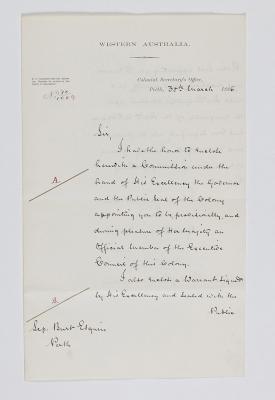 WESTERN AUSTRALIA.
Colonial Secretary's Office,
Perth, 30th March 1886
Sir,
I have the honor to enclose
herewith a Commission under the
A.
hand of His Excellency the Governor
and the Public Seal of the Colony
appointing you to be provisionally and
during pleasure of Her Majesty an
Official Member of the Executive
Council of this Colony.
I also enclose a Warrant signed
by His Excellency and sealed with the
Public
Sep. Burt Esquire
Perth